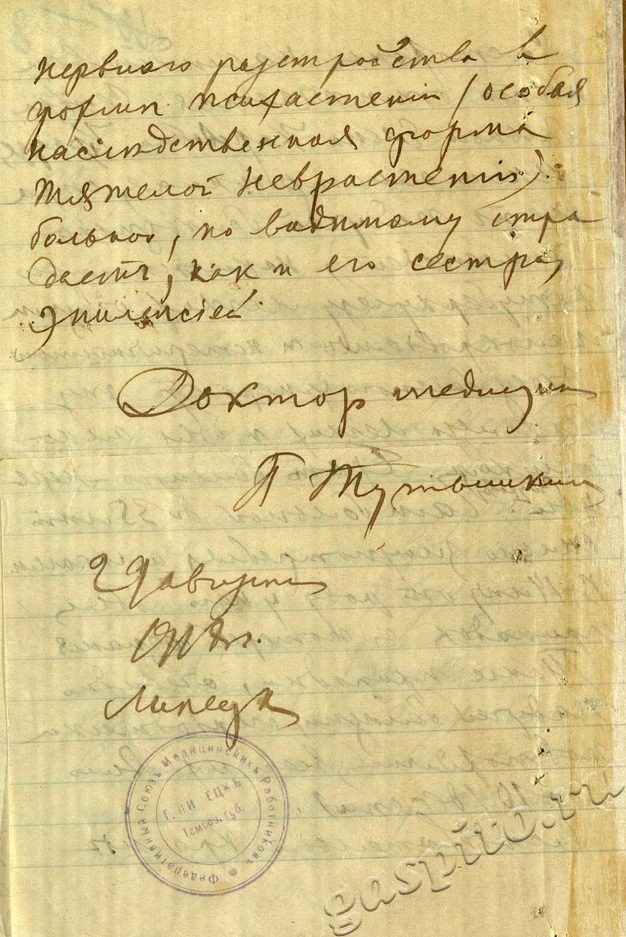 нервнаго разстройства в
форме психастеніи (особая
наследственная форма
тяжелой неврастеніи).
больной, по видимому стра
дает, как и его сестра,
эпилепсіей.
Доктор медицины
П Тутышкин
29 августа
Липецк
Федеративный Союзъ Медицинскихъ Работниковъ
Тамбов. губ.
gaspito.ru